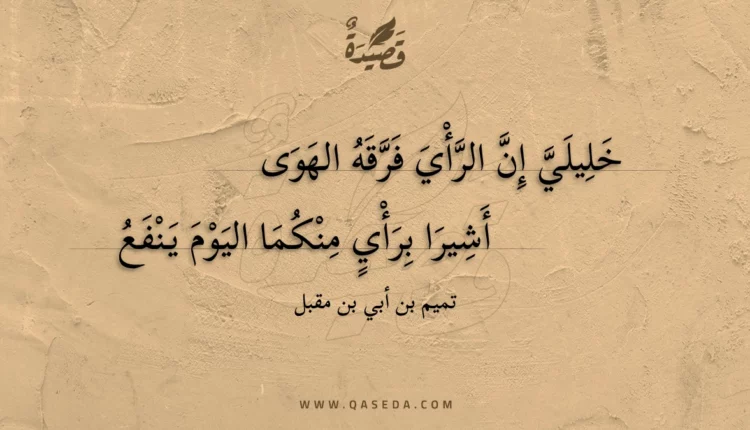 قَصِيدَةٌ
خَلِيلَيَّ إِنَّ الرَّأْيَ فَرَّقَهُ الهَوَى
أَشِيرَا بِرَأْيٍ مِنْكُمَا اليَوْمَ يَنْفَعُ
تميم بن أبي بن مقبل
WWW.QASEDA.COM